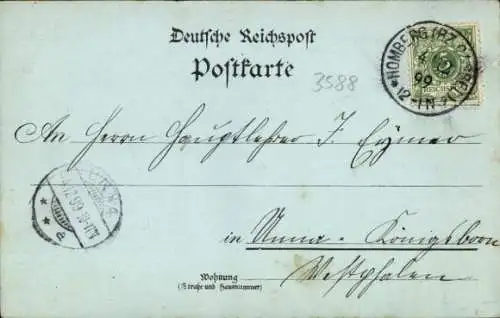 Deutsche Reichspost
Postkarte
3588
HOMBERG (BZ. CASSEL)
4
99
12-1N
An Herrn Hauptlehrer F. Eymer
UNNA
99
in Unna-Königsborn
Westphalen
Wohnung
(Straße und Hausnummer)